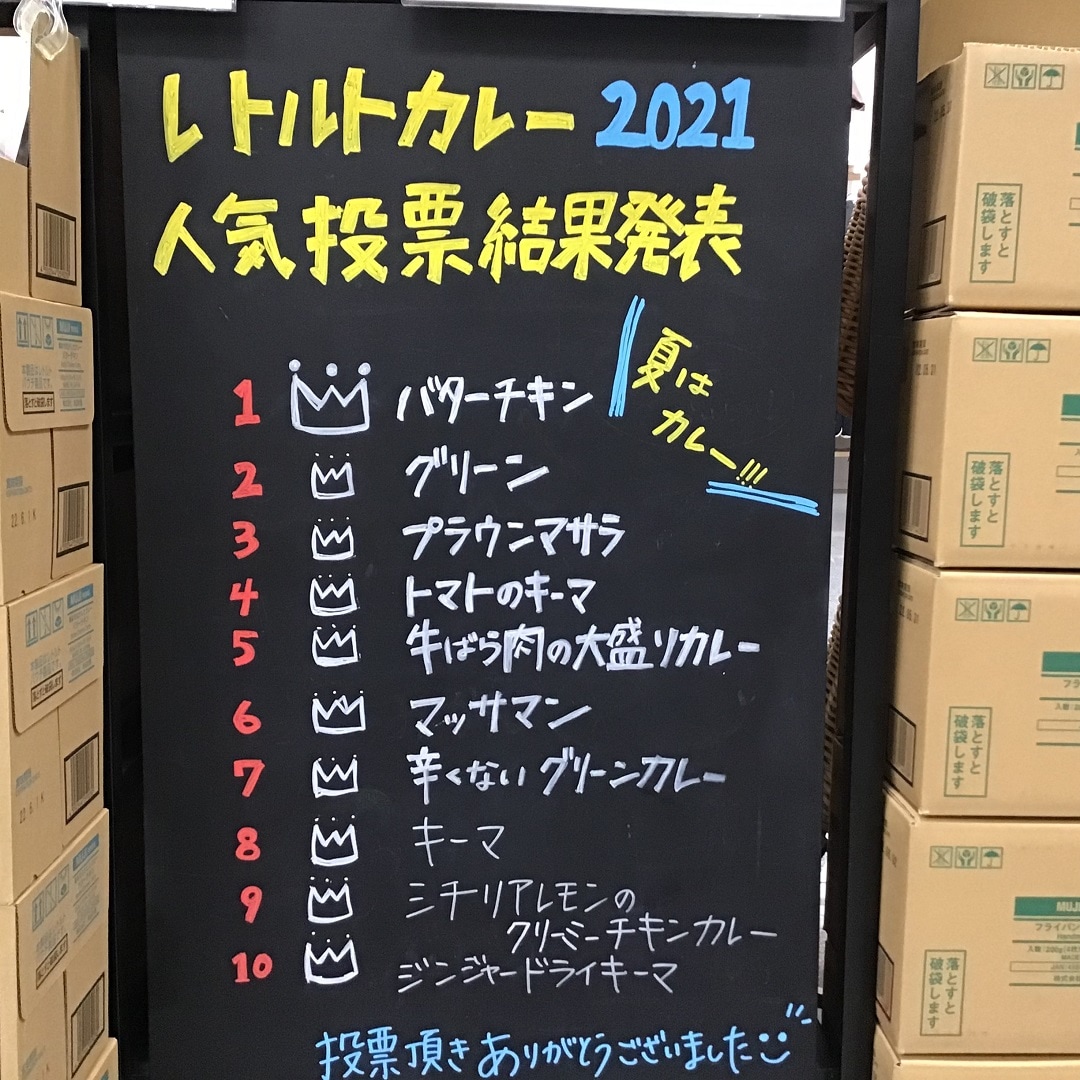 レトルトカレー 2021
人気投票結果発表
夏は
カレー!!!
1 バターチキン
2 グリーン
3 プラウンマサラ
4 トマトのキーマ
5 牛ばら肉の大盛りカレー
6 マッサマン
7 辛くない グリーンカレー
8 キーマ
9 シチリアレモンの
クリーミーチキンカレー
10 ジンジャードライキーマ
投票頂きありがとうございました
落とすと
破袋します
落とすと
破袋します
落とすと
破袋します
落とすと
破袋します
MUJI
フライパン
22.6.1 K
22.6.1 K